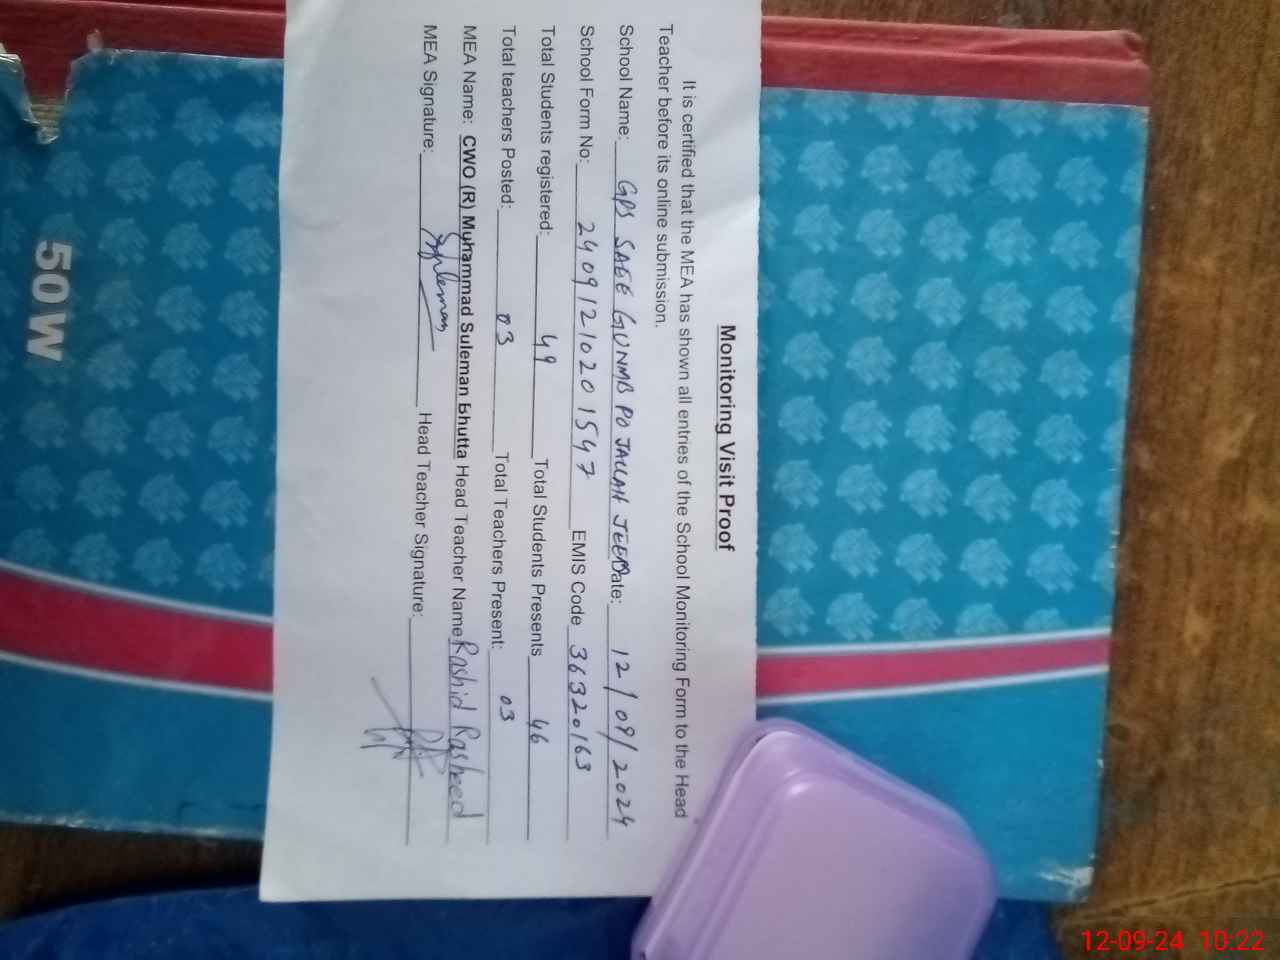 Monitoring Visit Proof
It is certified that the MEA has shown all entries of the School Monitoring Form to the Head
Teacher before its online submission.
School Name: GPS SAGE GUNMB PO JALLAH JEEM Date: 12/09/2024
School Form No: 24091210201547 EMIS Code 36320163
Total Students registered: 49 Total Students Presents 46
Total teachers Posted: 03 Total Teachers Present: 03
MEA Name: CWO (R) Muhammad Suleman Bhutta Head Teacher Name Rashid Rasheed
MEA Signature: Suleman Head Teacher Signature:
50 W
12-09-24 10:22